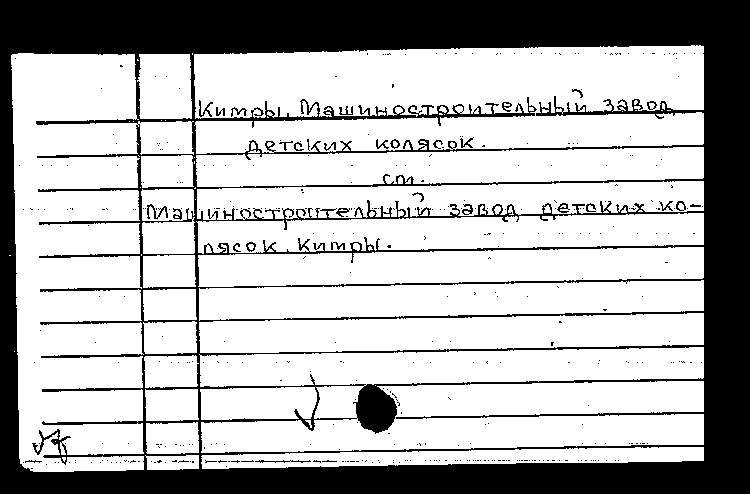 Кимры. Машиностроительный завод
детских колясок.
см.
Машиностроительный завод детских ко-
лясок. Кимры.